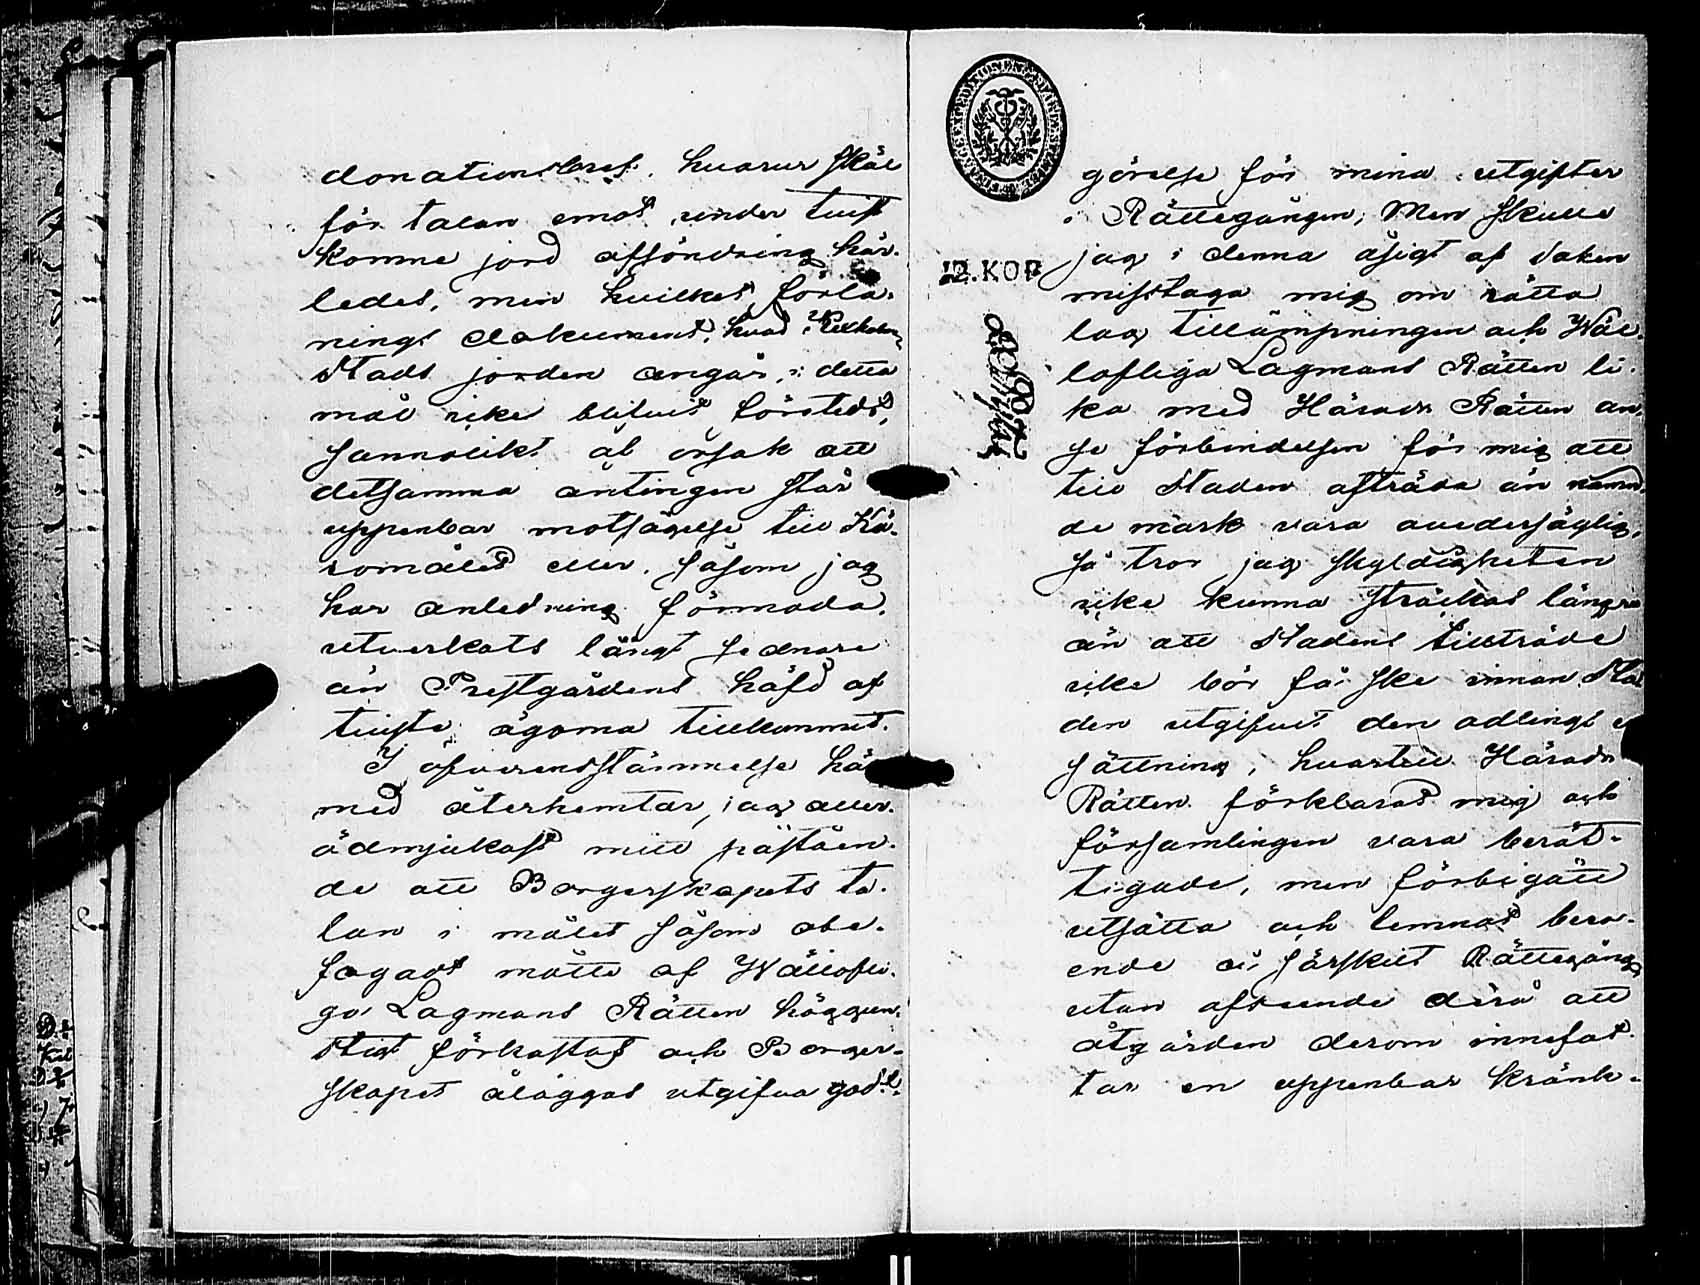 donationsbref, hvarur skäl
för talan emot under tvist
komne jord afsöndring här-
ledes, men hvilket förlä-
nings dokument, hvad Kexholms
Stads jorden angår, i detta
mål icke blifvit företedt,
sannolikt af orsak att
detsamma antingen står i
uppenbar motsägelse till Kä-
romålet eller, såsom jag
har anledning förmoda,
utverkats långt sednare
än Prestgårdens häfd af
tvista ägorna tillkommit.
I öfverensstämmelse här
med återhemtar jag aller-
ödmjukast mitt påståen-
de att Borgerskapets ta-
lan i målet såsom obe-
fogadt måtte af Wällofli-
ga Lagmans Rätten höggun-
stigt förkastas och Borger-
skapet åläggas utgifva godt-
görelse för mina utgifter
i Rättegången; Men skulle
jag i denna åsigt af saken
12.KOP
misstaga mig om rätta
lag tillämpningen och Wäl-
lofliga Lagmans Rätten li-
ka med Härads Rätten an-
se förbindelsen för mig att
till Staden afträda än nämn-
de mark vara ovedersäglig,
så tror jag skyldigheten
icke kunna sträckas längre
än att Stadens tillträde
icke bör få ske innan Sta-
den utgifvit den odlings er-
sättning, hvartill Härads
Rätten förklarat mig och
församlingen vara berät-
tigade, men förbigått
utsätta och lemnat bero-
ende å särskilt Rättegång
utan afseende derå att
åtgärden derom innefat-
tar en uppenbar kränk-